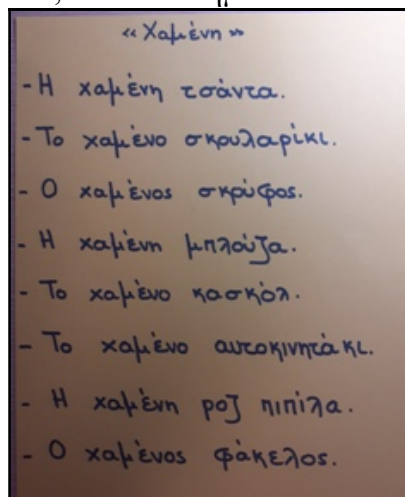 «Χαμένη»
- Η χαμένη τσάντα.
- Το χαμένο σκουλαρίκι.
- Ο χαμένος σκούφος.
- Η χαμένη μπλούζα.
- Το χαμένο κασκόλ.
- Το χαμένο αυτοκινητάκι.
- Η χαμένη ροζ πιπίλα.
- Ο χαμένος φάκελος.